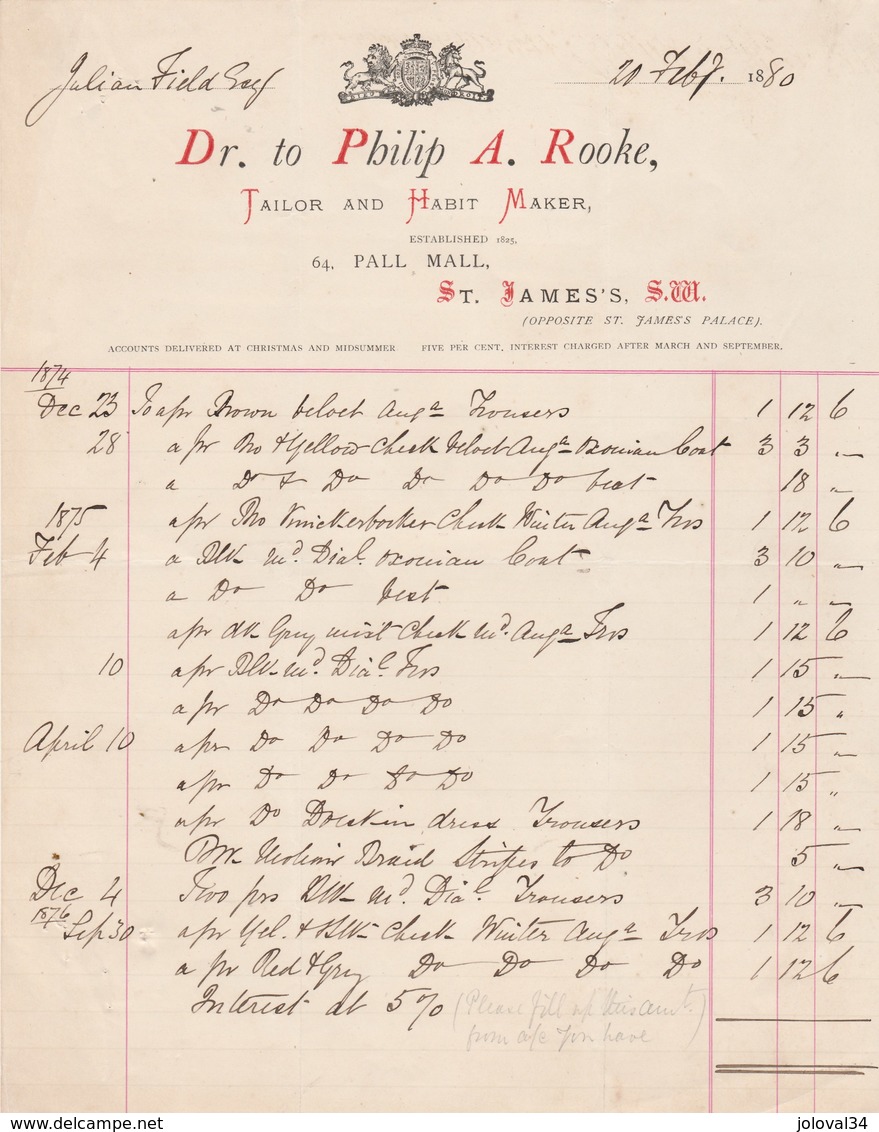 Julian Field Esq
20 Feby. 1880
DIEU ET MON DROIT
Dr. to Philip A. Rooke,
TAILOR AND HABIT MAKER,
ESTABLISHED 1825,
64, PALL MALL,
ST. JAMES'S, S.W.
(OPPOSITE ST. JAMES'S PALACE).
ACCOUNTS DELIVERED AT CHRISTMAS AND MIDSUMMER FIVE PER CENT. INTEREST CHARGED AFTER MARCH AND SEPTEMBER.
1874
Dec 23 To a pr Brown velvet Anga Trousers 1 12 6
28 a pr Bro & Yellow Check velvet Anga oxonian Coat 3 3 "
a Do & Do Do Do Do vest 18 "
1875 a pr Bro Knickerbocker Check Winter Anga Trs 1 12 6
Feb 4 a Blk Md. Dial. oxonian Coat 3 10 "
a Do Do vest 1 " "
a pr dk Grey mixt Check Md. Anga Trs 1 12 6
10 a pr Blk Md. Dial. Trs 1 15 "
a pr Do Do Do Do 1 15 "
April 10 a pr Do Do Do Do 1 15 "
a pr Do Do Do Do 1 15 "
a pr Do Doeskin dress Trousers 1 18 "
Blk Mohair Braid Stripes to Do 5 "
Dec 4 Two prs Blk Md. Dial. Trousers 3 10 "
1876
Sep 30 a pr Yel. & Blk Check Winter Anga Trs 1 12 6
a pr Red & Grey Do Do Do Do 1 12 6
Interest at 5% (Please fill up this amt.)
from a/c you have
www.delcampe.net
joloval34